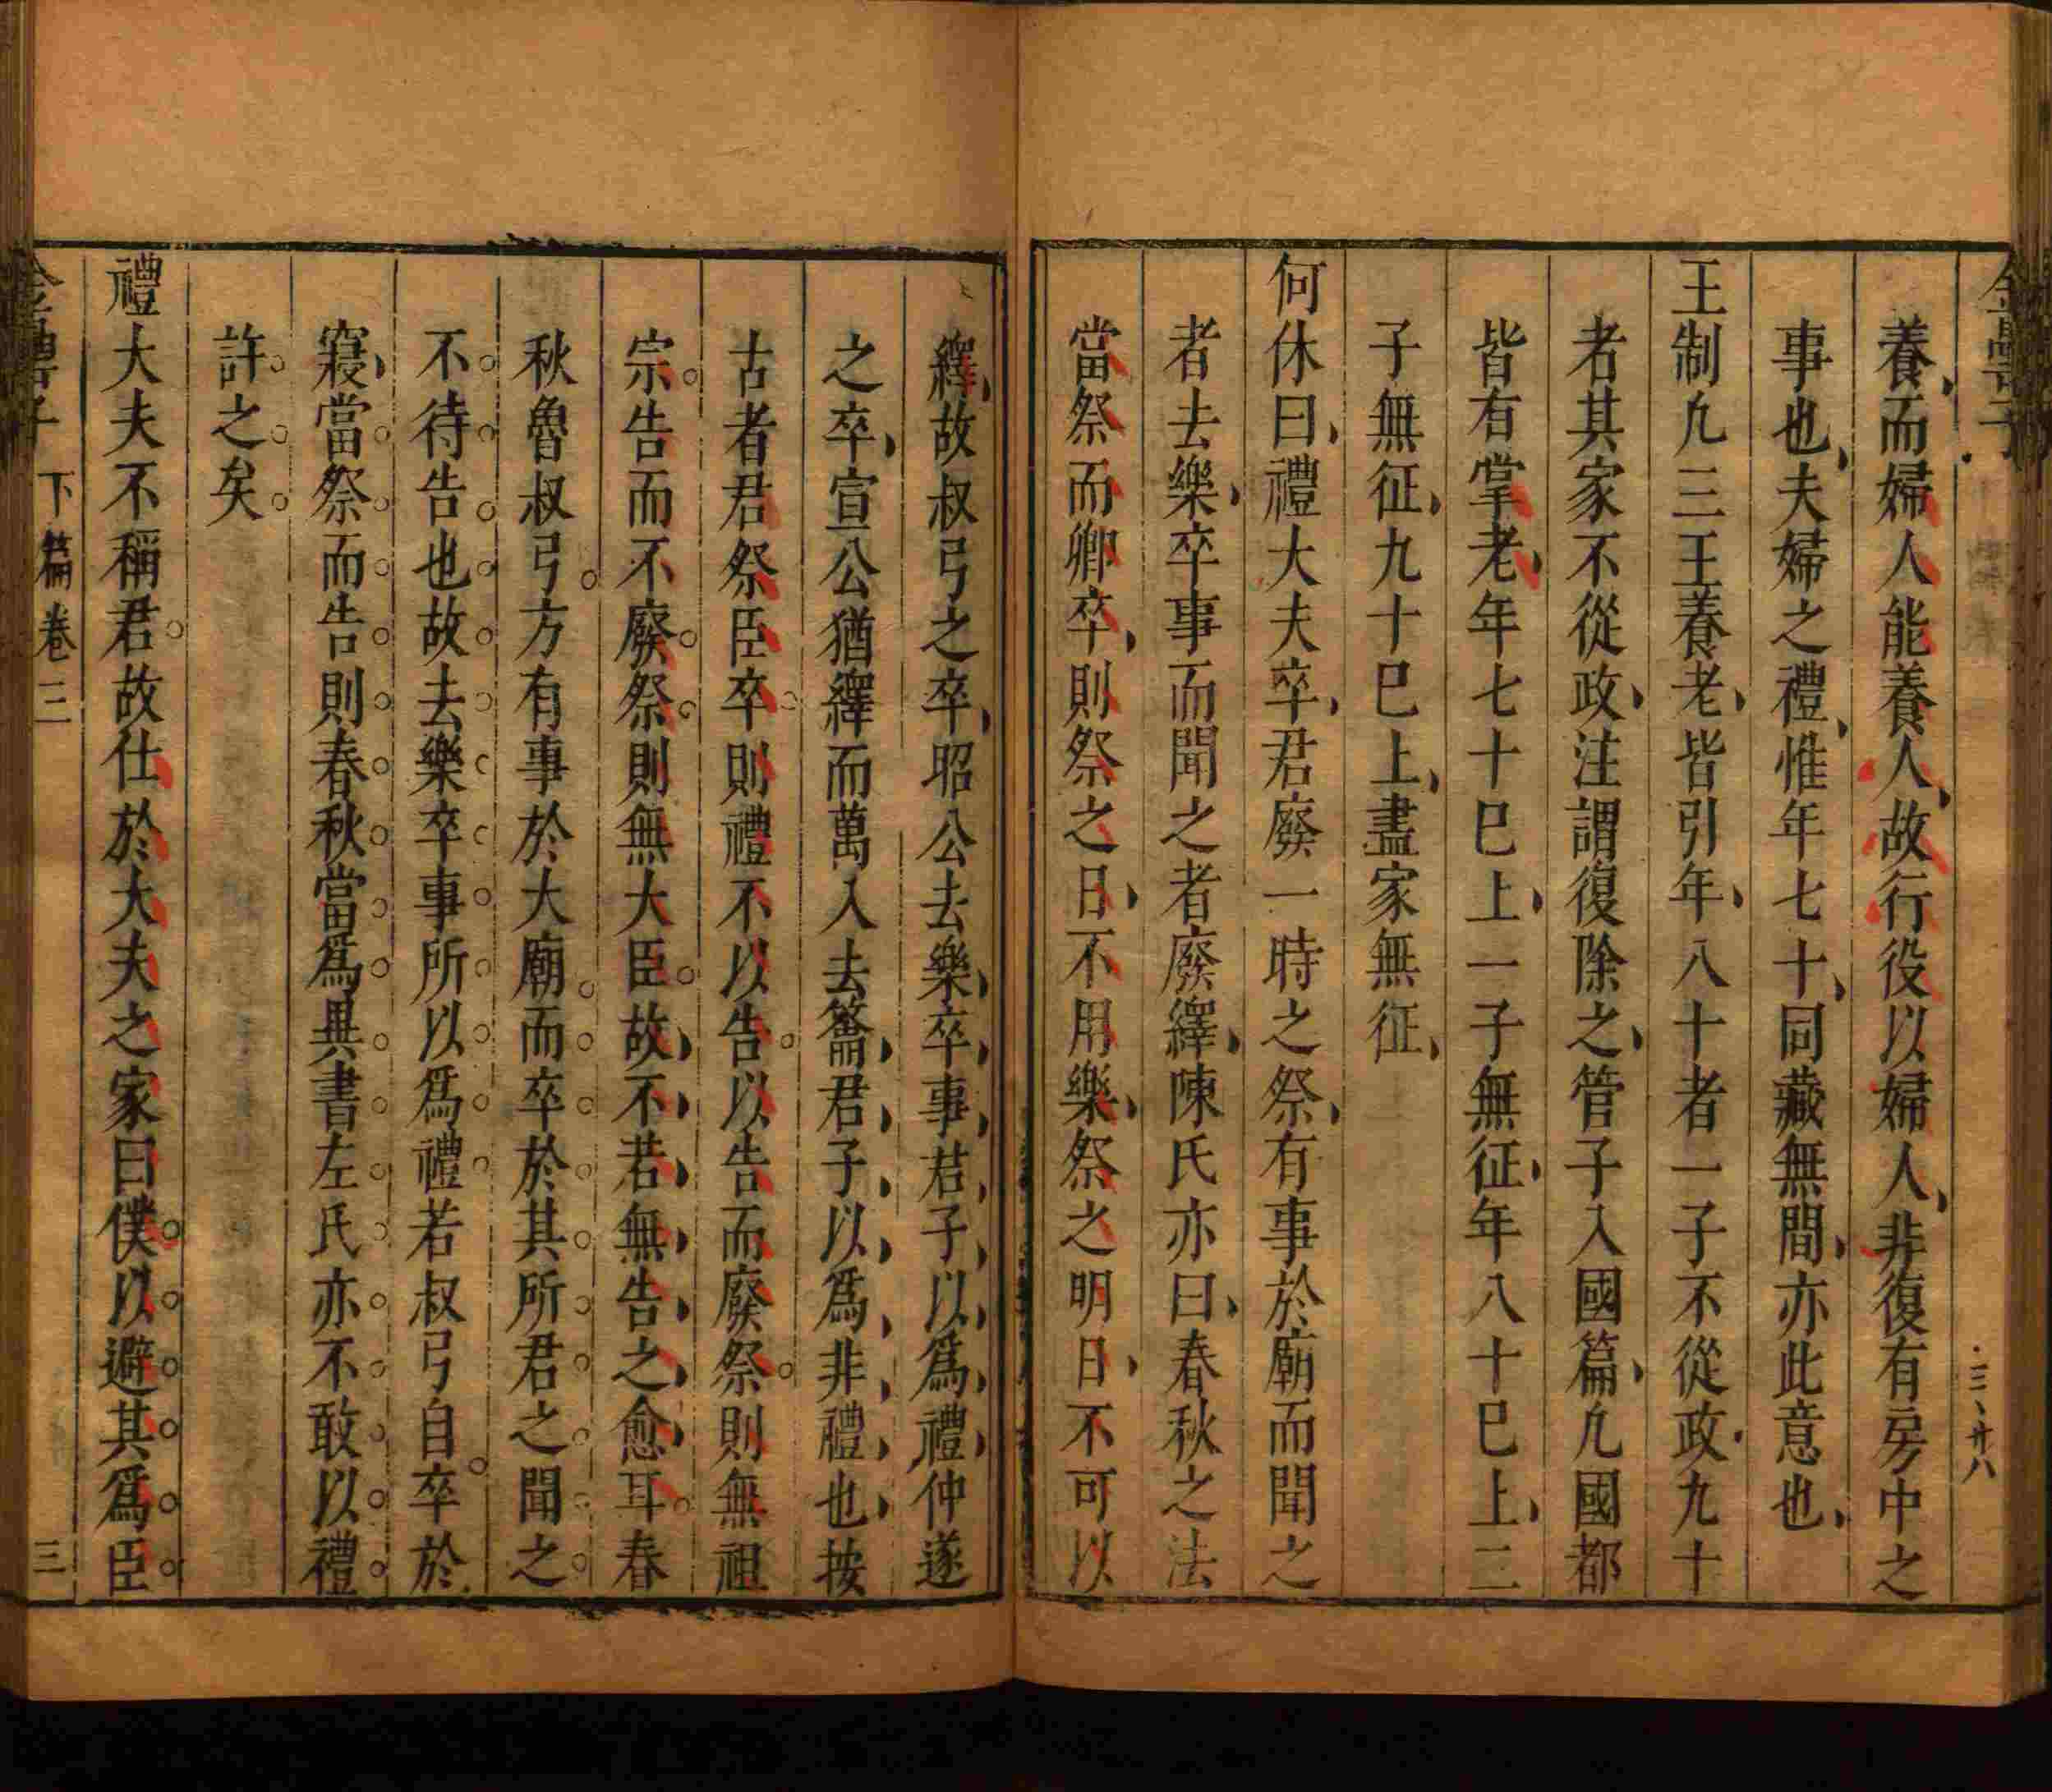 養而婦人能養人故行役以婦人非復有房中之
事也夫婦之禮惟年七十同藏無間亦此意也
王制凢三王養老皆引年八十者一子不從政九十
者其家不從政注謂復除之管子入國篇凢國都
皆有掌老年七十巳上一子無征年八十巳上二
子無征九十巳上盡家無征
何休曰禮大夫卒君廢一時之祭有事於廟而聞之
者去樂卒事而聞之者廢繹陳氏亦曰春秋之法
當祭而卿卒則祭之日不用樂祭之明日不可以
繹故叔弓之卒昭公去樂卒事君子以爲禮仲遂
之卒宣公猶繹而萬入去籥君子以爲非禮也按
古者君祭臣卒則禮不以告以告而廢祭則無祖
宗告而不廢祭則無大臣故不若無告之愈耳春
秋魯叔弓方有事於大廟而卒於其所君之聞之
不待告也故去樂卒事所以爲禮若叔弓自卒於
寢當祭而告則春秋當爲異書左氏亦不敢以禮
許之矣
禮大夫不稱君故仕於大夫之家曰僕以避其爲臣
下篇卷三
三